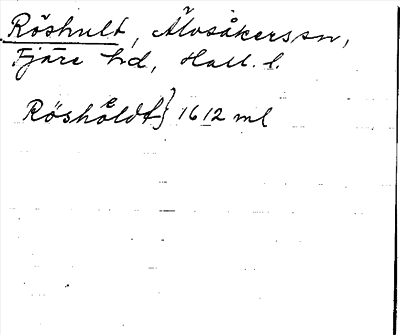 Röshult, Älvsåkerssn,
Fjäre hd, Hall. l.
Rösholdt} 1612 ml